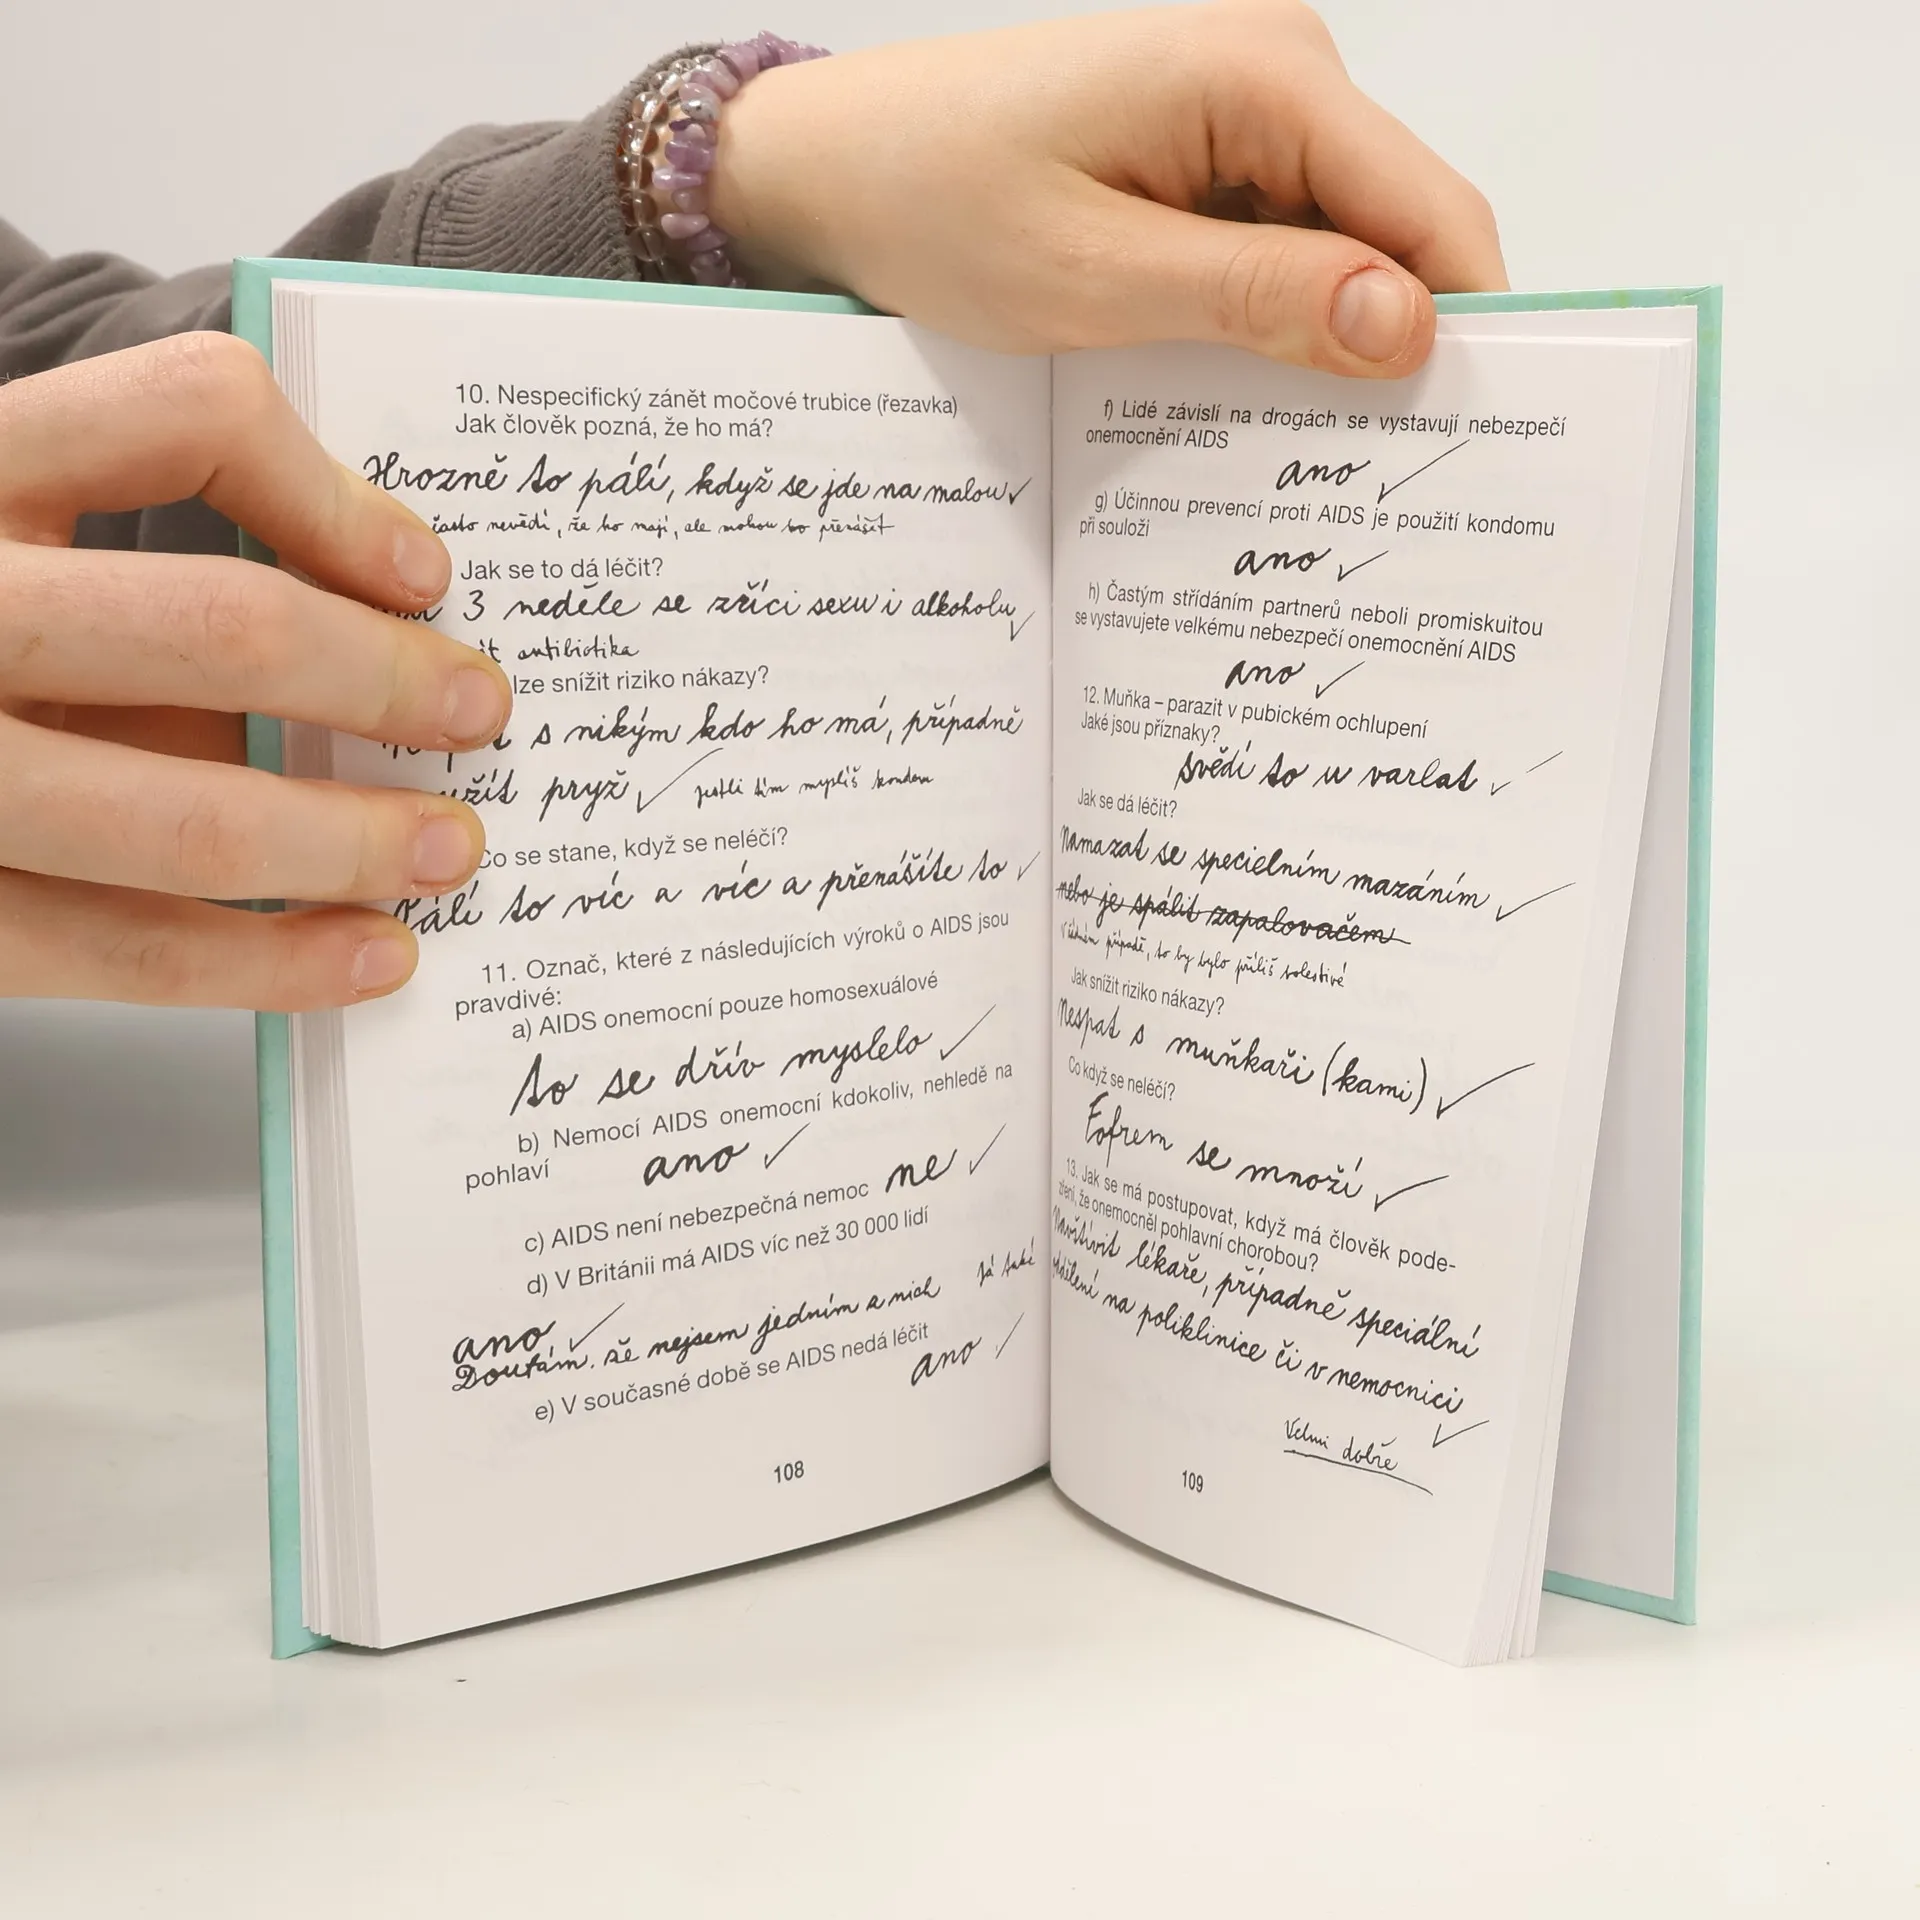 10. Nespecifický zánět močové trubice (řezavka)
Jak člověk pozná, že ho má?
Hrozně to pálí, když se jde na malou
často nevědí, že ho mají, ale mohou ho přenášet
Jak se to dá léčit?
3 neděle se zříci sexu i alkoholu
antibiotika
lze snížit riziko nákazy?
s nikým kdo ho má, případně
pryž jestli tím myslíš kondom
Co se stane, když se neléčí?
Pálí to víc a víc a přenášíte to
11. Označ, které z následujících výroků o AIDS jsou
pravdivé:
a) AIDS onemocní pouze homosexuálové
to se dřív myslelo
b) Nemocí AIDS onemocní kdokoliv, nehledě na
pohlaví ano
c) AIDS není nebezpečná nemoc ne
d) V Británii má AIDS víc než 30 000 lidí
ano
Doufám, že nejsem jedním z nich Já také
e) V současné době se AIDS nedá léčit
ano
108
f) Lidé závislí na drogách se vystavují nebezpečí
onemocnění AIDS
ano
g) Účinnou prevencí proti AIDS je použití kondomu
při souloži
ano
h) Častým střídáním partnerů neboli promiskuitou
se vystavujete velkému nebezpečí onemocnění AIDS
ano
12. Muňka – parazit v pubickém ochlupení
Jaké jsou příznaky?
svědí to u varlat
Jak se dá léčit?
Namazat se specielním mazáním
nebo je spálit zapalovačem
V žádném případě, to by bylo příliš bolestivé
Jak snížit riziko nákazy?
Nespat s muňkaři (kami)
Co když se neléčí?
Fofrem se množí
13. Jak se má postupovat, když má člověk pode-
zření, že onemocněl pohlavní chorobou?
Navštívit lékaře, případně speciální
oddělení na poliklinice či v nemocnici
Velmi dobře
109